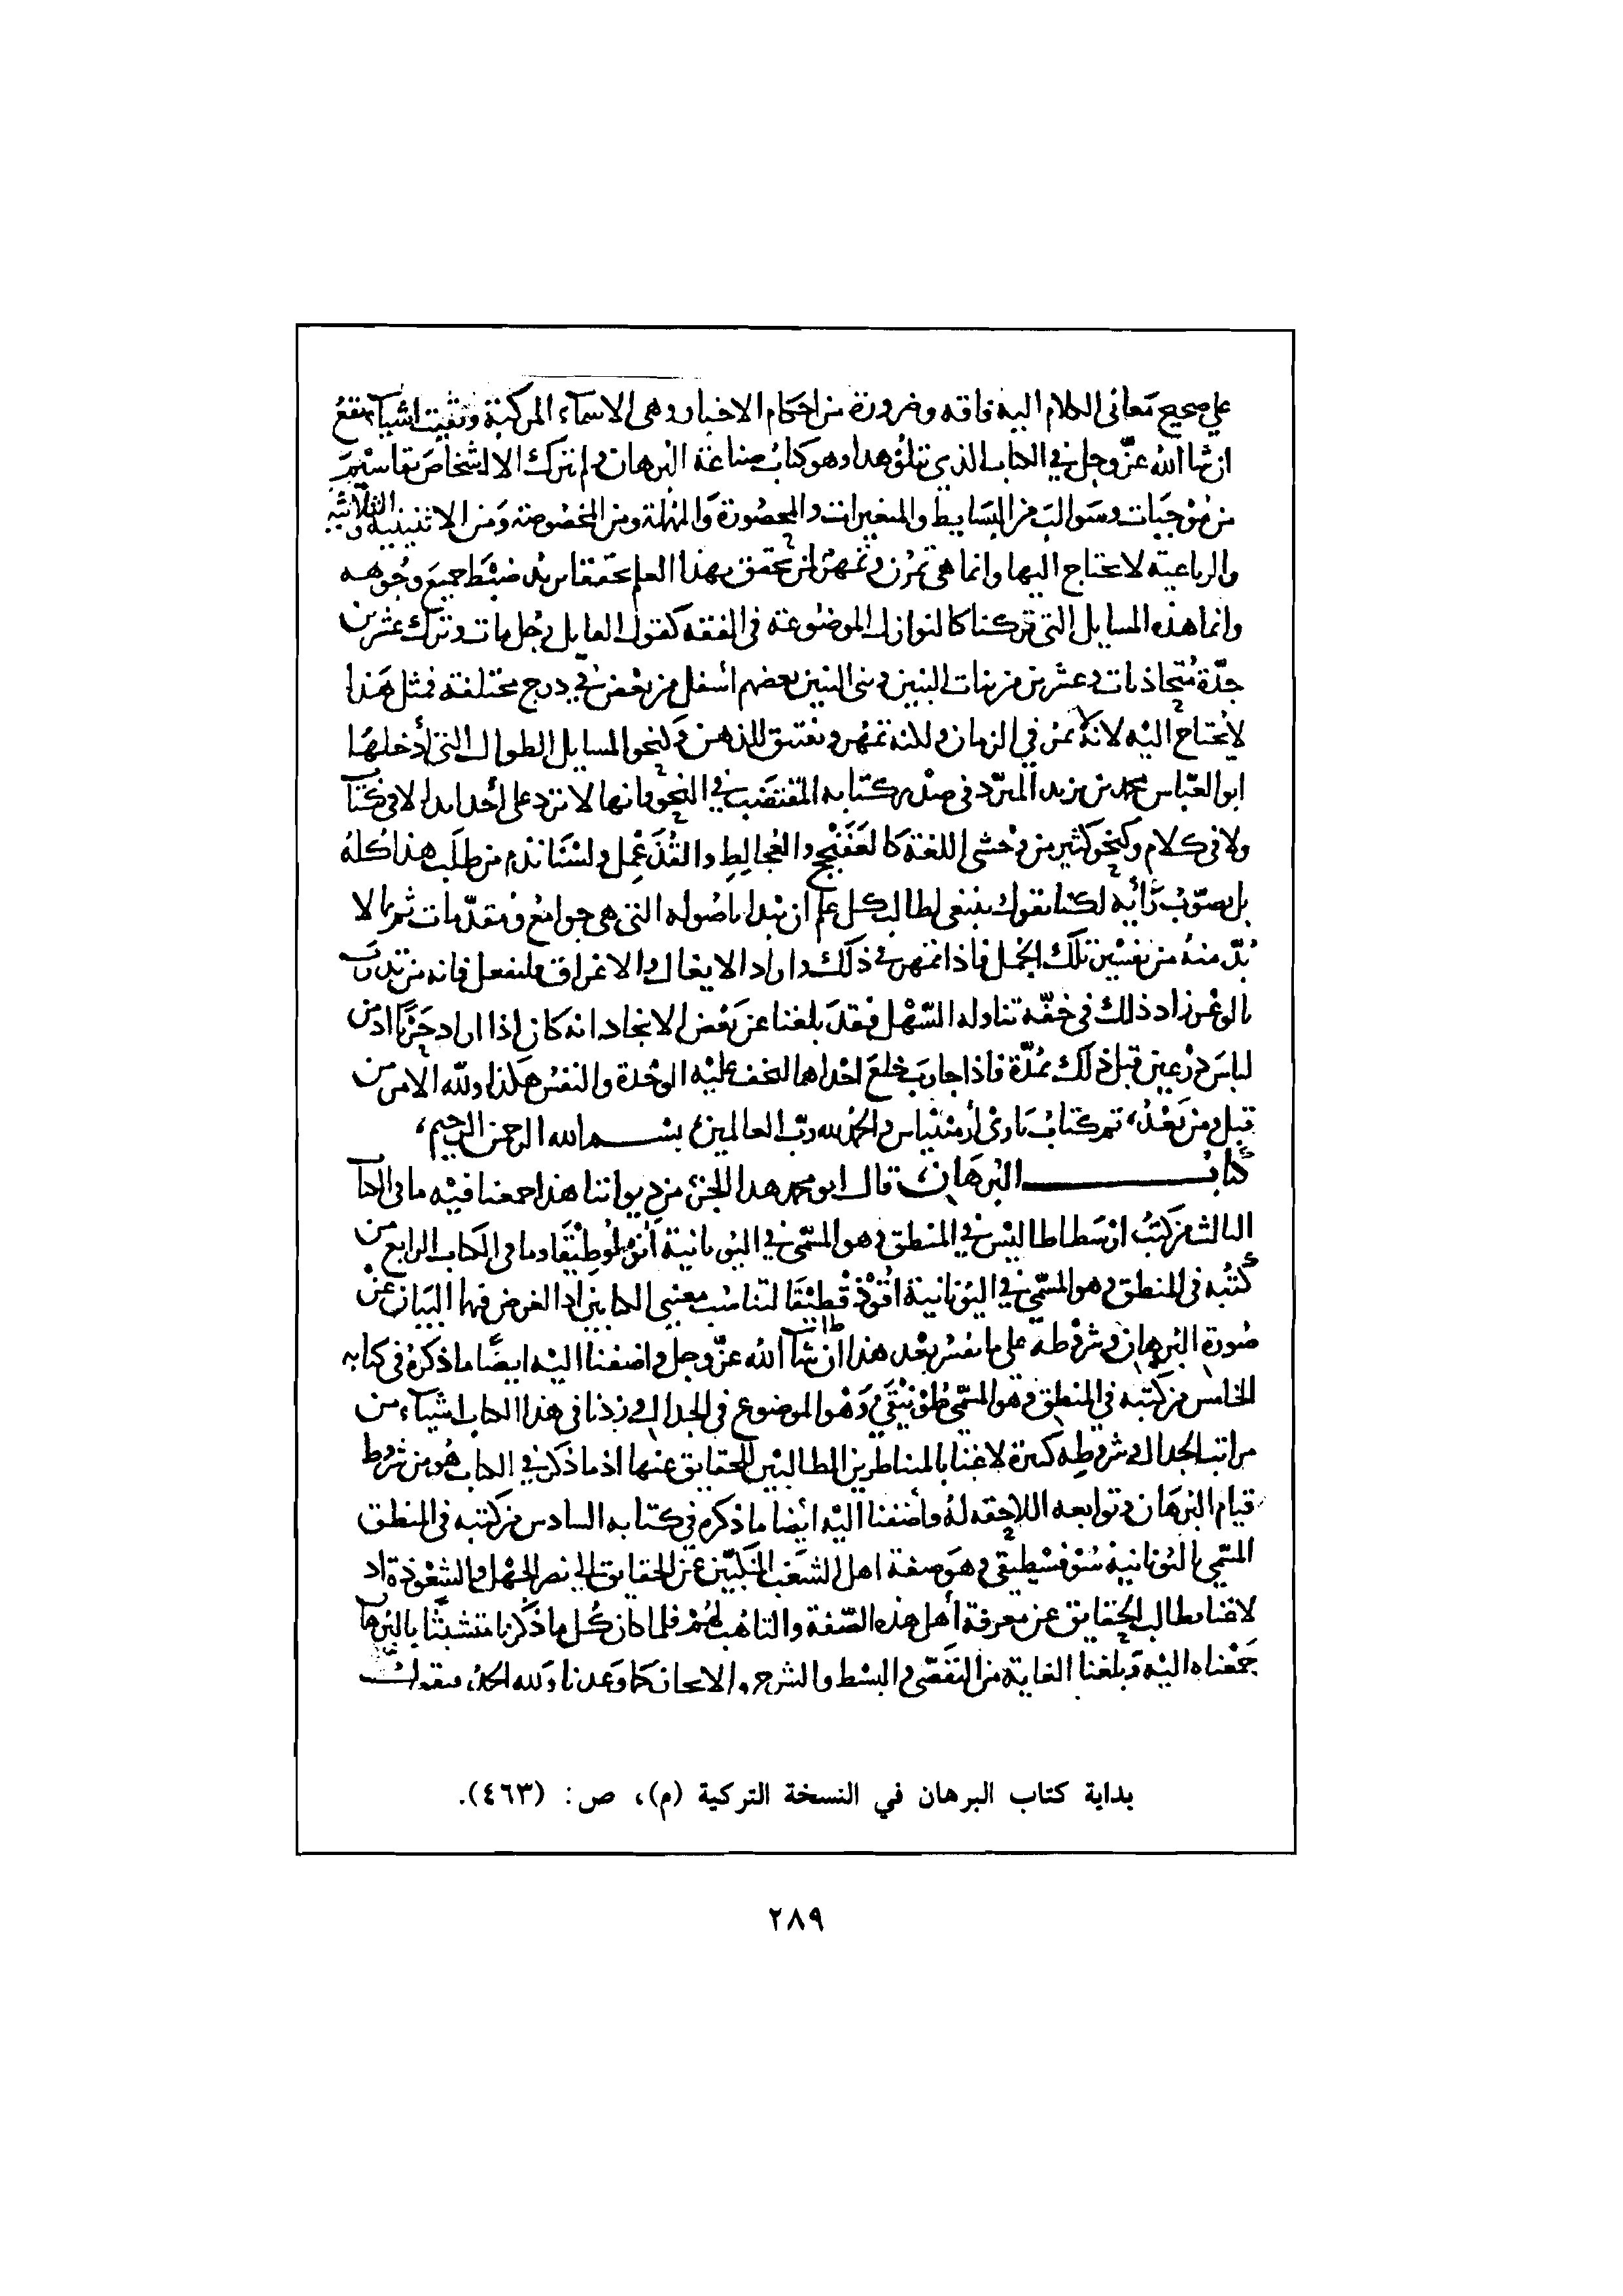 على صحيح معاني الكلام اليه فاقه وضرورة من احكام الاخبار وهى الاسماء المركبة وبقيت اشياء تقع
ان شا الله عز وجل في الكتاب الذي يتلو هذا وهو كتاب صناعة البرهان ولم نترك الا اشخاص تقاسيم
من موجبات وسوالب من البسايط والمتغيرات والمحصورة والمهملة ومن المخصوصة ومن الاثنينية والثلاثية
والرباعية لا يحتاج اليها وانما هي تمرن وتمهر لمن تحقق بهذا العلم تحققا يريد ضبط جميع وجوهه
وانما هذه المسايل التي تركنا كالنوازل الموضوعة في الفقه كقول القايل رجل مات وترك عشرين
جدة متحاذيات وعشرين من بنات البنين وبنى البنين بعضهم اسفل من بعض في درج مختلفة فمثل هذا
لا يحتاج اليه لانه لا يمر في الزمان ولكنه تمهر وتفتيق للذهن وكنحو المسايل الطوال التي أدخلها
ابو العباس محمد بن يزيد المبرد في صدر كتابه المقتضب في النحو فانها لا ترد على أحد ابدا لا في كتاب
ولا في كلام وكنحو كثير من وحشي اللغة كالعفنجج والعجالط والقذعمل ولسنا نذم من طلب هذا كله
بل نصوب رأيه لكنا نقول ينبغي لطالب كل علم ان يبدا باصوله التي هى جوامع ومقدمات ثم بما لا
بد منه من تفسير تلك الجمل فاذا تمهر في ذلك واراد الايغال والاغراق فليفعل فانه من تدرب
بالوعر زاد ذلك في خفة تناوله السهل فقد بلغنا عن بعض الانجاد انه كان اذا اراد حربا ادمن
لباس درعين قبل ذلك بمدة فاذا حارب خلع احداهما لتخف عليه الواحدة والنفس هكذا ولله الامر من
قبل ومن بعد، تم كتاب بارى أرمنياس والحمد لله رب العالمين بسم الله الرحمن الرحيم،
كتاب البرهان قال ابو محمد هذا الجزء من ديواننا هذا جمعنا فيه ما في الكتاب
الثالث من كتب ارسطاطاليس في المنطق وهو المسمى في اليونانية انولوطيقا وما في الكتاب الرابع من
كتبه في المنطق وهو المسمى في اليونانية افوذقطيقا لتناسب معنيي الكتابين اذ الغرض فيهما البيان عن
صورة البرهان وشروطه على ما نفسر بعد هذا ان شآ الله عز وجل واضفنا اليه ايضا ما ذكره في كتابه
الخامس من كتبه في المنطق وهو المسمى طوبيقى وهو الموضوع في الجدال وزدنا في هذا الكتاب اشيآء من
مراتب الجدال وشروطه كثيرة لا غنا بالمناظرين الطالبين للحقايق عنها اذ ما ذكر في الكتاب هو من شروط
قيام البرهان وتوابعه اللاحقه له وأضفنا اليه أيضا ما ذكره في كتابه السادس من كتبه في المنطق
المسمى باليونانية سوفسطيقى وهو صفة اهل الشغب المنكبين عن الحقايق الى نصر الجهل والشعوذة اذ
لا غنا بطالب الحقايق عن معرفة أهل هذه الصفة والتاهب لهم فلما كان كل ما ذكرنا متشبثا بالبرهان
جمعناه اليه وبلغنا الغاية من التقصى والبسط والشرح والايجاز كما وعدنا ولله الحمد، فنقول
بداية كتاب البرهان في النسخة التركية (م)، ص: (٤٦٣).
٢٨٩